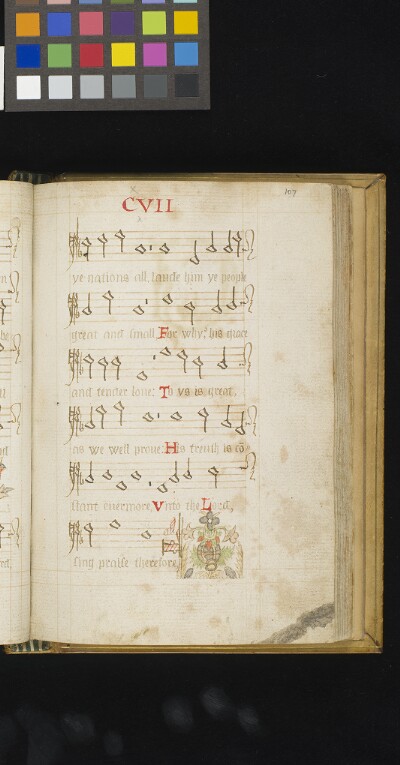 107
CVII
ye nations all, laude him ye people
great and small, For why? his grace
and tender loue, To vs is great,
as we well proue: His trueth is cō
stant euermore, Vnto the Lord,
sing praise therefore.